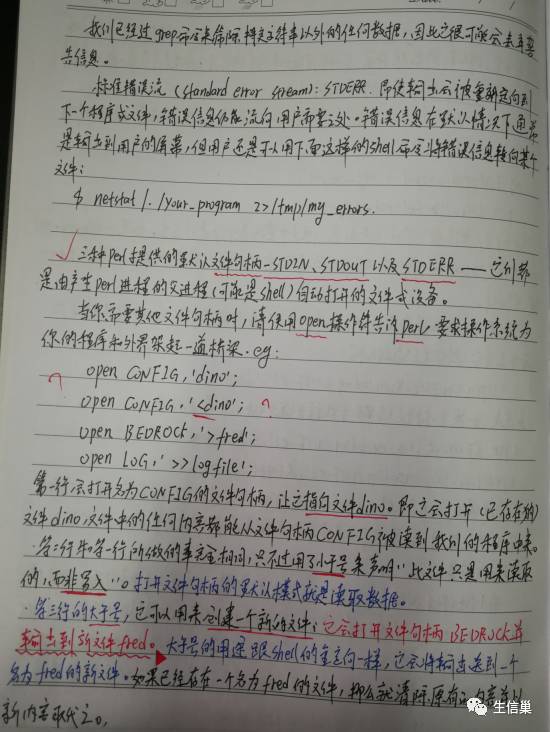 我们已经过grep命令来筛除特定文件串以外的任何数据，因此它很可能会来毒害
告信息。
标准错误流 (standard error stream): STDERR. 即使输出会被重新定向到
下一个程序或文件，错误信息仍能流向用户需要之处。错误信息在默认情况下通常
是输出到用户的屏幕，但用户还是可以用下面这样的shell命令将错误信息转向某个
文件:
$ netstat /./your_program 2>/tmp/my_errors.
三种perl提供的默认文件句柄—STDIN、STDOUT以及STDERR——它们都
是由产生perl进程的父进程(可能是shell)自动打开的文件或设备。
当你需要其他文件句柄时，请使用open操作符告诉perl，要求操作系统为
你的程序和外界架起一道桥梁. eg:
open CONFIG,'dino';
? open CONFIG,'<dino'; ?
open BEDROCK,'>fred';
open LOG,'>>logfile';
第一行会打开名为CONFIG的文件句柄，让它指向文件dino。即它会打开(已存在的)
文件dino，文件中的任何内容都能从文件句柄CONFIG被读到我们的程序中来。
·第二行和第一行所做的事完全相同，只不过用了小于号来声明"此文件只是用来读取
的，而非写入"。打开文件句柄的默认模式就是读取数据。
·第三行的大于号，它可以用来创建一个新的文件：它会打开文件句柄BEDROCK并
输出到新文件fred。大于号的用途跟shell的重定向一样，它会将输出送到一个
名为fred的新文件。如果已经存在一个名为fred的文件，那么就清除原有的内容并以
新内容取代之。
生信巢